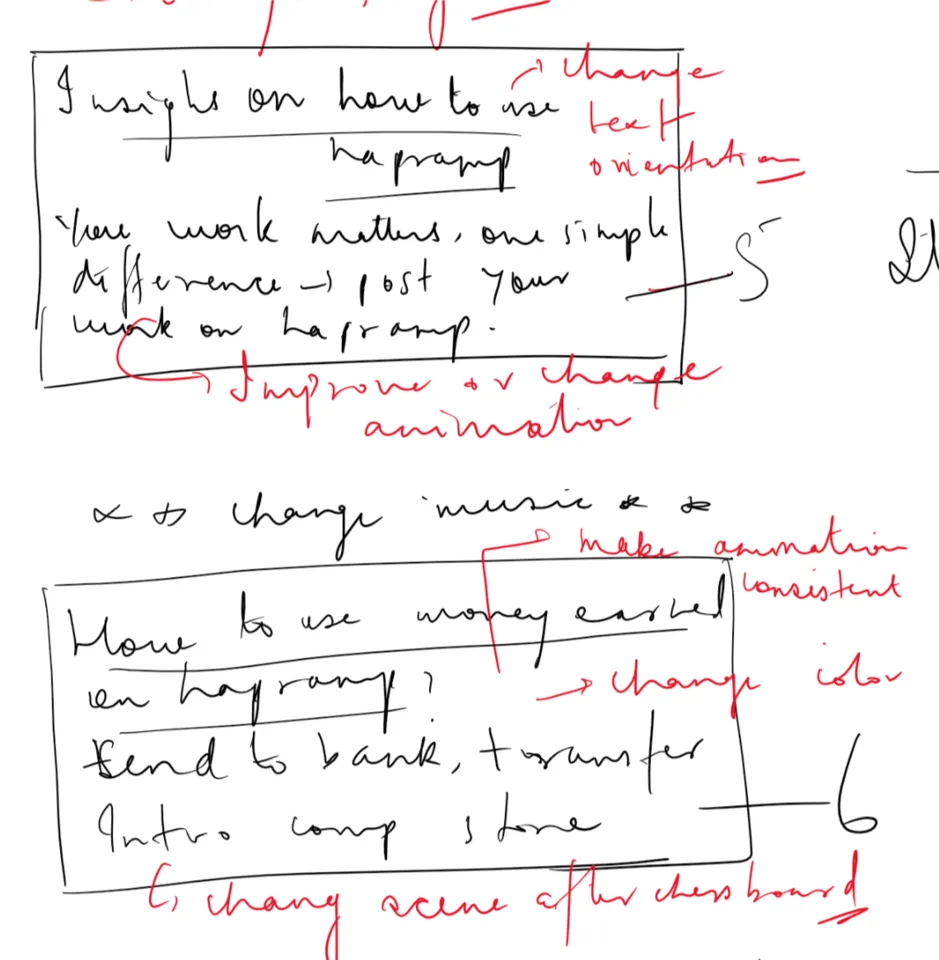 Insighs on how to use
hapramp
change
text
orientation
Your work matters, one simple
difference → post your
work on hapramp.
5
Improve or change
animation
change music * *
make animation
consistent
How to use money earned
on hapramp?
change color
send to bank, transfer
Intro comp store
6
chang scene after chessboard